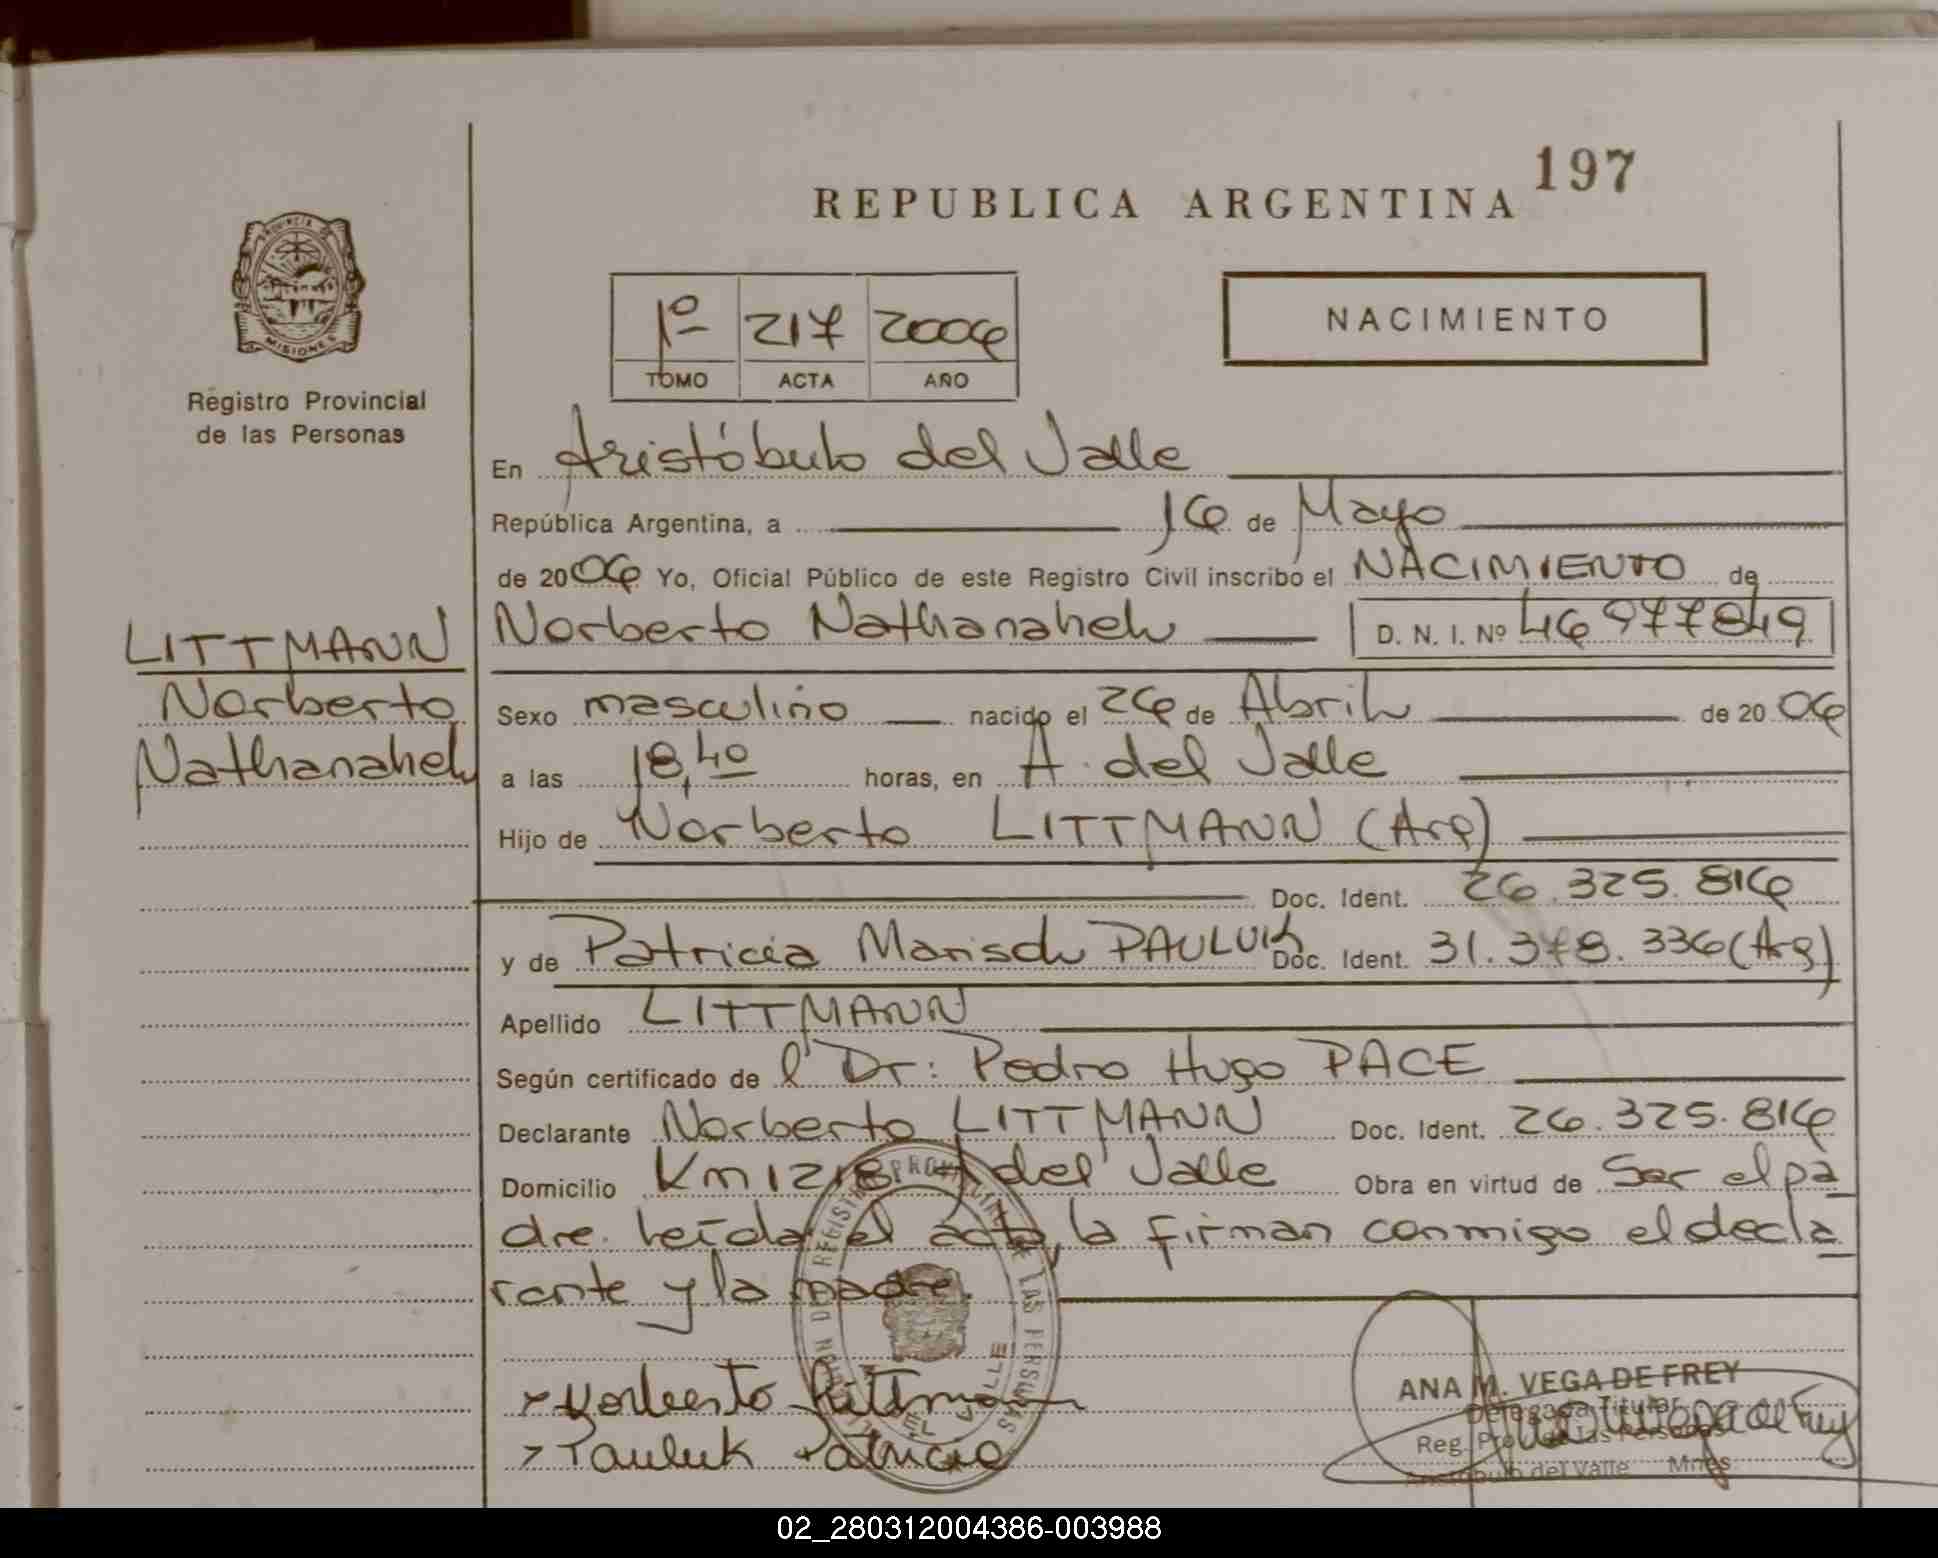 197
REPUBLICA ARGENTINA
PROVINCIA DE MISIONES
Registro Provincial
de las Personas
1º 217 2006
TOMO ACTA AÑO
NACIMIENTO
En Aristóbulo del Valle
República Argentina, a 16 de Mayo
de 2006 Yo, Oficial Público de este Registro Civil inscribo el NACIMIENTO de
LITTMANN
Norberto
Nathanahel
Norberto Nathanahel D. N. I. Nº 46977849
Sexo masculino nacido el 26 de Abril de 2006
a las 18,40 horas, en A. del Valle
Hijo de Norberto LITTMANN (Arg)
Doc. Ident. 26.325.816
y de Patricia Marisel PAULUK Doc. Ident. 31.378.336 (Arg)
Apellido LITTMANN
Según certificado de l Dr: Pedro Hugo PACE
Declarante Norberto LITTMANN Doc. Ident. 26.325.816
Domicilio Km 1218 A del Valle Obra en virtud de Ser el pa
dre. leída el acta, la firman conmigo el decla
rante y la madre.
Norberto Littmann
Pauluk Patricia
ANA M. VEGA DE FREY
Delegada Titular
Reg. Prov. de las Personas
Aristóbulo del Valle Mnes
02_280312004386-003988